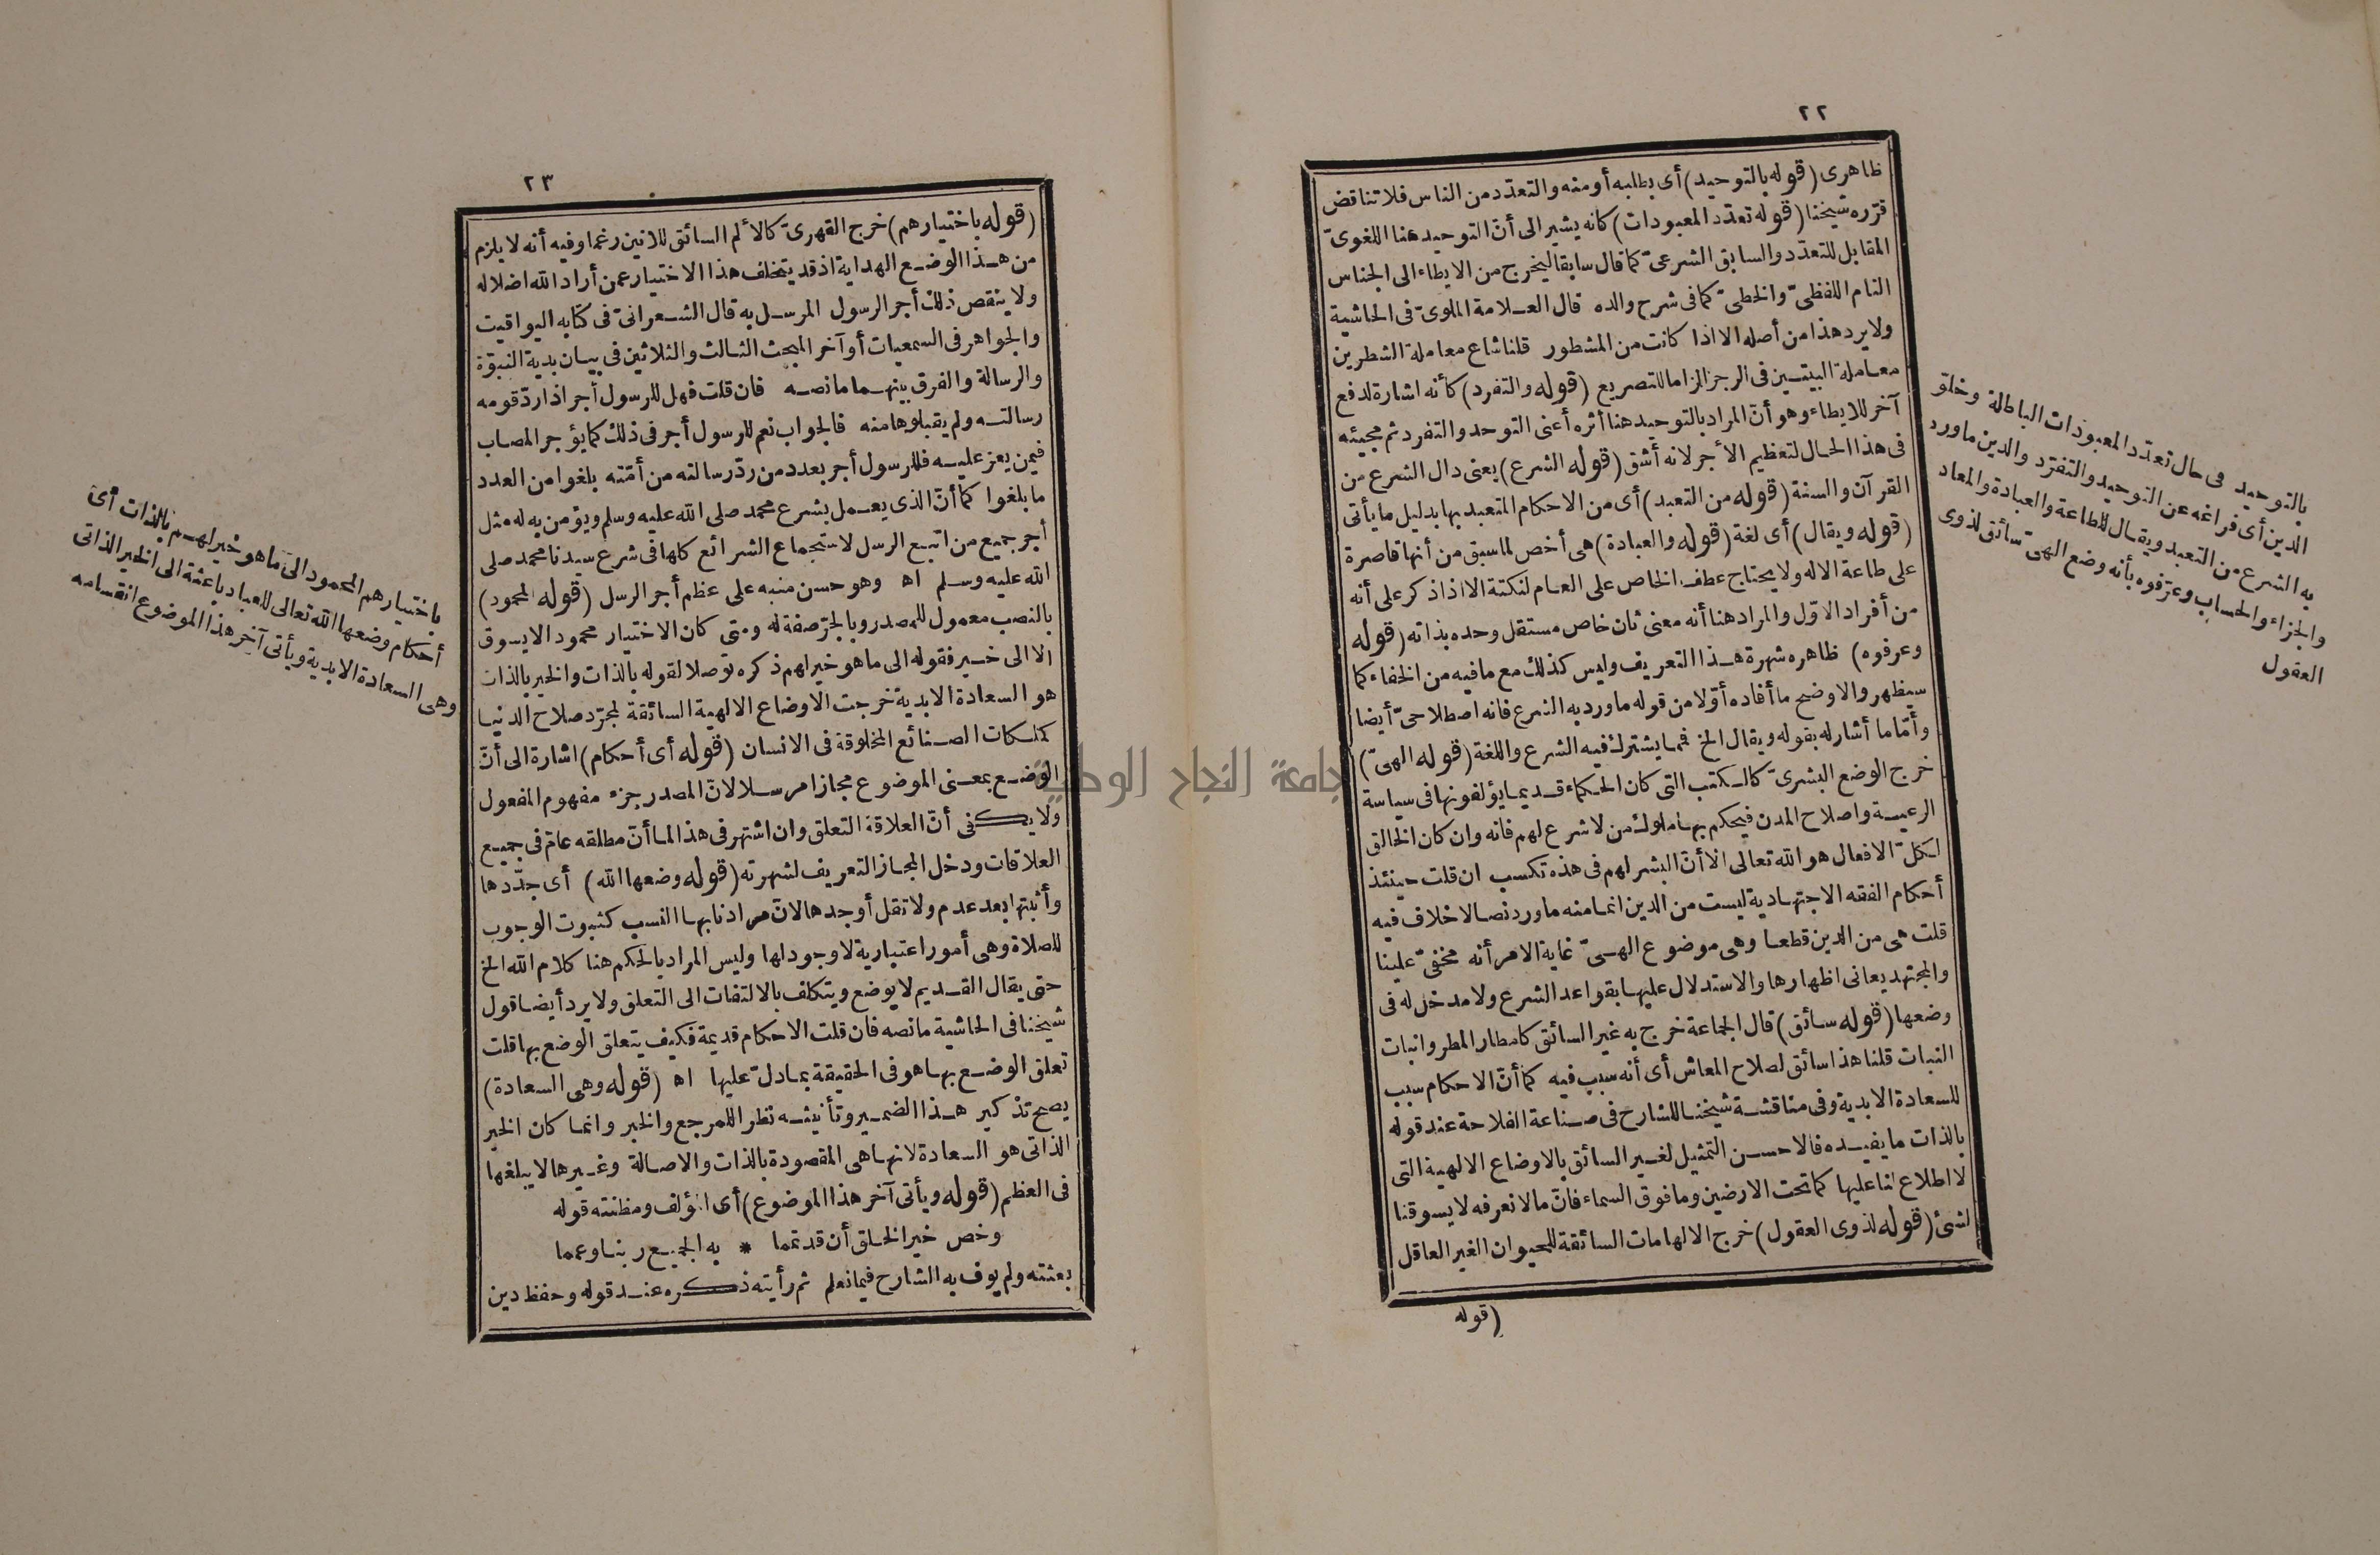 ٢٢
ظاهرى (قوله بالتوحيد) أى بطلبه أو منه والتعدّد من الناس فلا تناقض
قرّره شيخنا (قوله تعدّد المعبودات) كانه يشير الى أنّ التوحيد هنا اللغوىّ
المقابل للتعدّد والسابق الشرعىّ كما قال سابقا ليخرج من الايطاء الى الجناس
التام اللفظىّ والخطىّ كما فى شرح والده قال العلامة الملوىّ فى الحاشية
ولا يرد هذا من أصله الا اذا كانت من المشطور قلنا شاع معاملة الشطرين
معاملة البيتين فى الرجز التزاما للتصريع (قوله والتفرد) كأنه اشارة لدفع
آخر للايطاء وهو أنّ المراد بالتوحيد هنا أثره أعنى التوحد والتفرد ثم مجيئه
فى هذا الحال لتعظيم الأجر لانه أشق (قوله الشرع) بعنى دال الشرع من
القرآن والسنة (قوله من التعبد) أى من الاحكام المتعبد بها بدليل ما يأتى
(قوله ويقال) أى لغة (قوله والعبادة) هى أخص لما سبق من أنها قاصرة
على طاعة الاله ولا يحتاج عطف الخاص على العام لنكتة الا اذا ذكر على أنه
من أفراد الاوّل والمراد هنا أنه معنى ثان خاص مستقل وحده بذاته (قوله
وعرفوه) ظاهره شهرة هذا التعريف وليس كذلك مع ما فيه من الخفاء كما
سيظهر والاوضح ما أفاده أوّلا من قوله ما ورد به الشرع فانه اصطلاحىّ أيضا
وأمّا ما أشار له بقوله ويقال الخ فمما يشترك فيه الشرع واللغة (قوله الهىّ)
خرج الوضع البشرىّ كالكتب التى كان الحكماء قديما يؤلفونها فى سياسة
الرعية واصلاح المدن فيحكم بها ملوك من لا شرع لهم فانه وان كان الخالق
لكلّ الافعال هو الله تعالى الا أنّ البشر لهم فى هذه تكسب ان قلت حينئذ
أحكام الفقه الاجتهادية ليست من الدين انما منه ما ورد نصا لا خلاف فيه
قلت هى من الدين قطعا وهى موضوع الهىّ غاية الامر أنه مخفىّ علينا
والمجتهد يعانى اظهارها والاستدلال عليها بقواعد الشرع ولا مدخل له فى
وضعها (قوله سائق) قال الجماعة خرج به غير السائق كامطار المطر وانبات
النبات قلنا هذا سائق لصلاح المعاش أى أنه سبب فيه كما أنّ الاحكام سبب
للسعادة الابدية وفى مناقشة شيخنا للشارح فى صناعة الفلاحة عند قوله
بالذات ما يفيده فالاحسن التمثيل لغير السائق بالاوضاع الالهية التى
لا اطلاع لنا عليها كما تحت الارضين وما فوق السماء فانّ ما لا نعرفه لا يسوقنا
لشئ (قوله لذوى العقول) خرج الالهامات السائقة للحيوان الغير العاقل
(قوله
بالتوحيد فى حال تعدّد المعبودات الباطلة وخلوّ
الدين أى فراغه عن التوحيد والتفرّد والدين ما ورد
به الشرع من التعبد ويقال للطاعة والعبادة والمعاد
والجزاء والحساب وعرّفوه بأنه وضع الهىّ سائق لذوى
العقول
٢٣
(قوله باختيارهم) خرج القهرىّ كالألم السائق للانين رغما وفيه أنه لا يلزم
من هذا الوضع الهداية اذ قد يتخلف هذا الاختيار عمن أراد الله اضلاله
ولا ينقص ذلك أجر الرسول المرسل به قال الشعرانىّ فى كتابه اليواقيت
والجواهر فى السمعيات أو آخر المبحث الثالث والثلاثين فى بيان بدية النبوّة
والرسالة والفرق بينهما ما نصه فان قلت فهل للرسول أجر اذا ردّ قومه
رسالته ولم يقبلوها منه فالجواب نعم للرسول أجر فى ذلك كما يؤجر المصاب
فيمن يعز عليه فللرسول أجر بعدد من ردّ رسالته من أمّته بلغوا من العدد
ما بلغوا كما أنّ الذى يعمل بشرع محمد صلى الله عليه وسلم ويؤمن به له مثل
أجر جميع من اتبع الرسل لاستجماع الشرائع كلها فى شرع سيدنا محمد صلى
الله عليه وسلم اه وهو حسن منبه على عظم أجر الرسل (قوله المحمود)
بالنصب معمول للمصدر وبالجرّ صفة له ومتى كان الاختيار محمودا لا يسوق
الا الى خير فقوله الى ما هو خير لهم ذكره توصلا لقوله بالذات والخير بالذات
هو السعادة الابدية خرجت الاوضاع الالهية السائقة لمجرّد صلاح الدنيا
كملكات الصنائع المخلوقة فى الانسان (قوله أى أحكام) اشارة الى أنّ
الوضع بمعنى الموضوع مجازا مرسلا لانّ المصدر جزء مفهوم المفعول
ولا يكفى أنّ العلاقة التعلق وان اشتهر فى هذا لما أنّ مطلقه عامّ فى جميع
العلاقات ودخل المجاز التعريف لشهرته (قوله وضعها الله) أى جدّدها
وأثبتها بعد عدم ولا تقل أوجدها لانّ مرادنا بها النسب كثبوت الوجوب
للصلاة وهى أمور اعتبارية لا وجود لها وليس المراد بالحكم هنا كلام الله الخ
حتى يقال القديم لا يوضع ويتكلف بالالتفات الى التعلق ولا يرد أيضا قول
شيخنا فى الحاشية ما نصه فان قلت الاحكام قديمة فكيف يتعلق الوضع بها قلت
تعلق الوضع بها هو فى الحقيقة بما دلّ عليها اه (قوله وهى السعادة)
يصح تذكير هذا الضمير وتأنيثه نظرا للمرجع والخبر وانما كان الخير
الذاتى هو السعادة لانها هى المقصودة بالذات والاصالة وغيرها لا يبلغها
فى العظم (قوله ويأتى آخر هذا الموضوع) أى المؤلف ومظنته قوله
وخص خير الخلق أن قد تمما * به الجميع ربنا وعمما
بعثته ولم يوف به الشارح فيما نعلم ثم رأيته ذكره عند قوله وحفظ دين
باختيارهم المحمود الى ما هو خير لهم بالذات أى
أحكام وضعها الله تعالى للعباد باعثة الى الخير الذاتى
وهى السعادة الابدية ويأتى آخر هذا الموضوع انقسامه
جامعة النجاح الوطنية